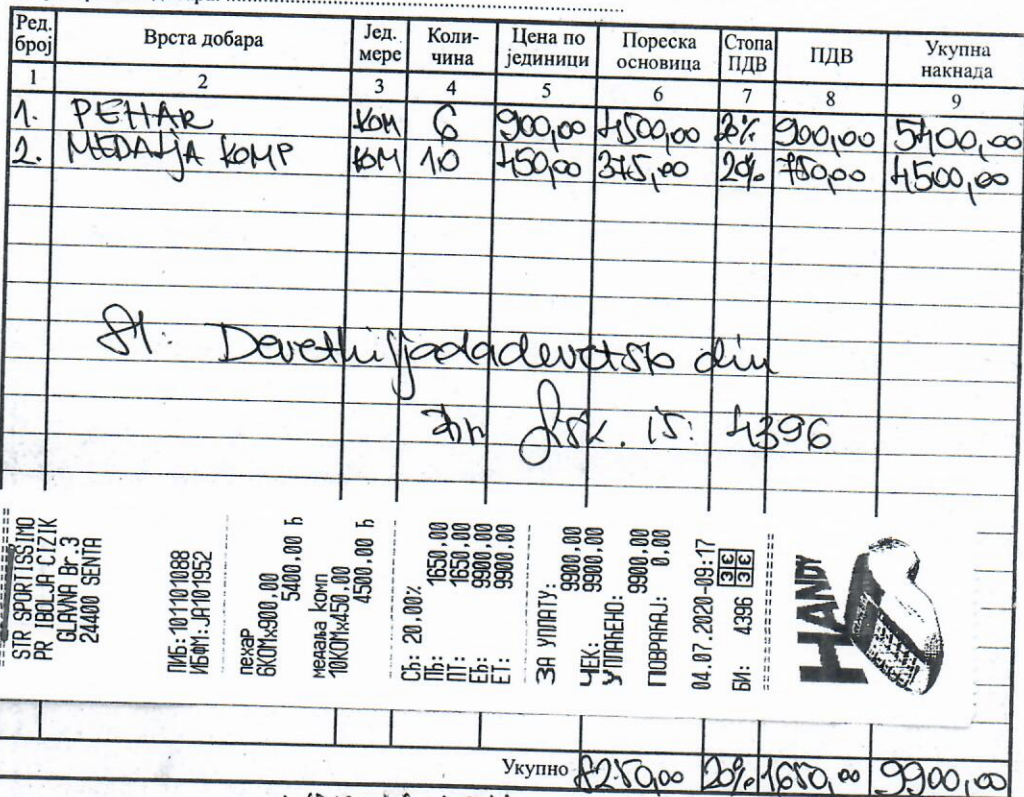 Ред. број Врста добара Јед. мере Коли-чина Цена по јединици Пореска основица Стопа ПДВ ПДВ Укупна накнада
1 2 3 4 5 6 7 8 9
1. PEHAR KOM 6 900,00 4500,00 20% 900,00 5400,00
2. MEDALJA KOMP KOM 10 450,00 375,00 20% 750,00 4500,00
Sl: Devethiljadadevetsto din
fisk. is: 4396
STR SPORTISSIMO
PR IBOLJA CIZIK
GLAVNA Br.3
24400 SENTA
ПИБ:101101088
ИБФМ:JA101952
пехар
6КОМx900.00
5400.00 Ђ
медаља комп
10КОМx450.00
4500.00 Ђ
СЂ: 20.00%
ПЂ: 1650.00
ПТ: 1650.00
ЕЂ: 9900.00
ЕТ: 9900.00
ЗА УПЛАТУ: 9900.00
ЧЕК: 9900.00
УПЛАЋЕНО: 9900.00
ПОВРАЋАЈ: 0.00
04.07.2020-09:17
БИ: 4396
HANDY
Укупно 8250,00 20% 1650,00 9900,00